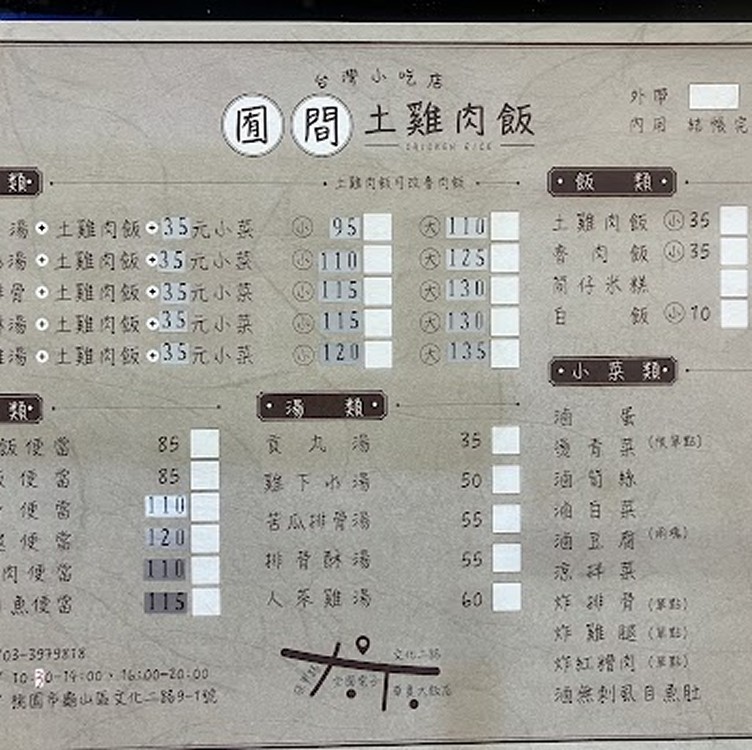 台灣小吃店
囿間 土雞肉飯
CHICKEN RICE
外帶
內用 結帳完
類
土雞肉飯可改魯肉飯
湯+土雞肉飯+35元小菜 小 95 大 110
湯+土雞肉飯+35元小菜 小 110 大 125
排骨+土雞肉飯+35元小菜 小 115 大 130
湯+土雞肉飯+35元小菜 小 115 大 130
雞湯+土雞肉飯+35元小菜 小 120 大 135
飯類
土雞肉飯 小 35
魯肉飯 小 35
筒仔米糕
白飯 小 10
類
飯便當 85
飯便當 85
便當 110
便當 120
肉便當 110
魚便當 115
湯類
貢丸湯 35
雞下水湯 50
苦瓜排骨湯 55
排骨酥湯 55
人蔘雞湯 60
小菜類
滷蛋
燙青菜 (限單點)
滷筍絲
滷白菜
滷豆腐 (兩塊)
涼拌菜
炸排骨 (單點)
炸雞腿 (單點)
炸紅糟肉 (單點)
滷無刺虱目魚肚
03-3979818
10:30-14:00·16:00-20:00
桃園市龜山區文化二路9-1號
文化二路
全國電子